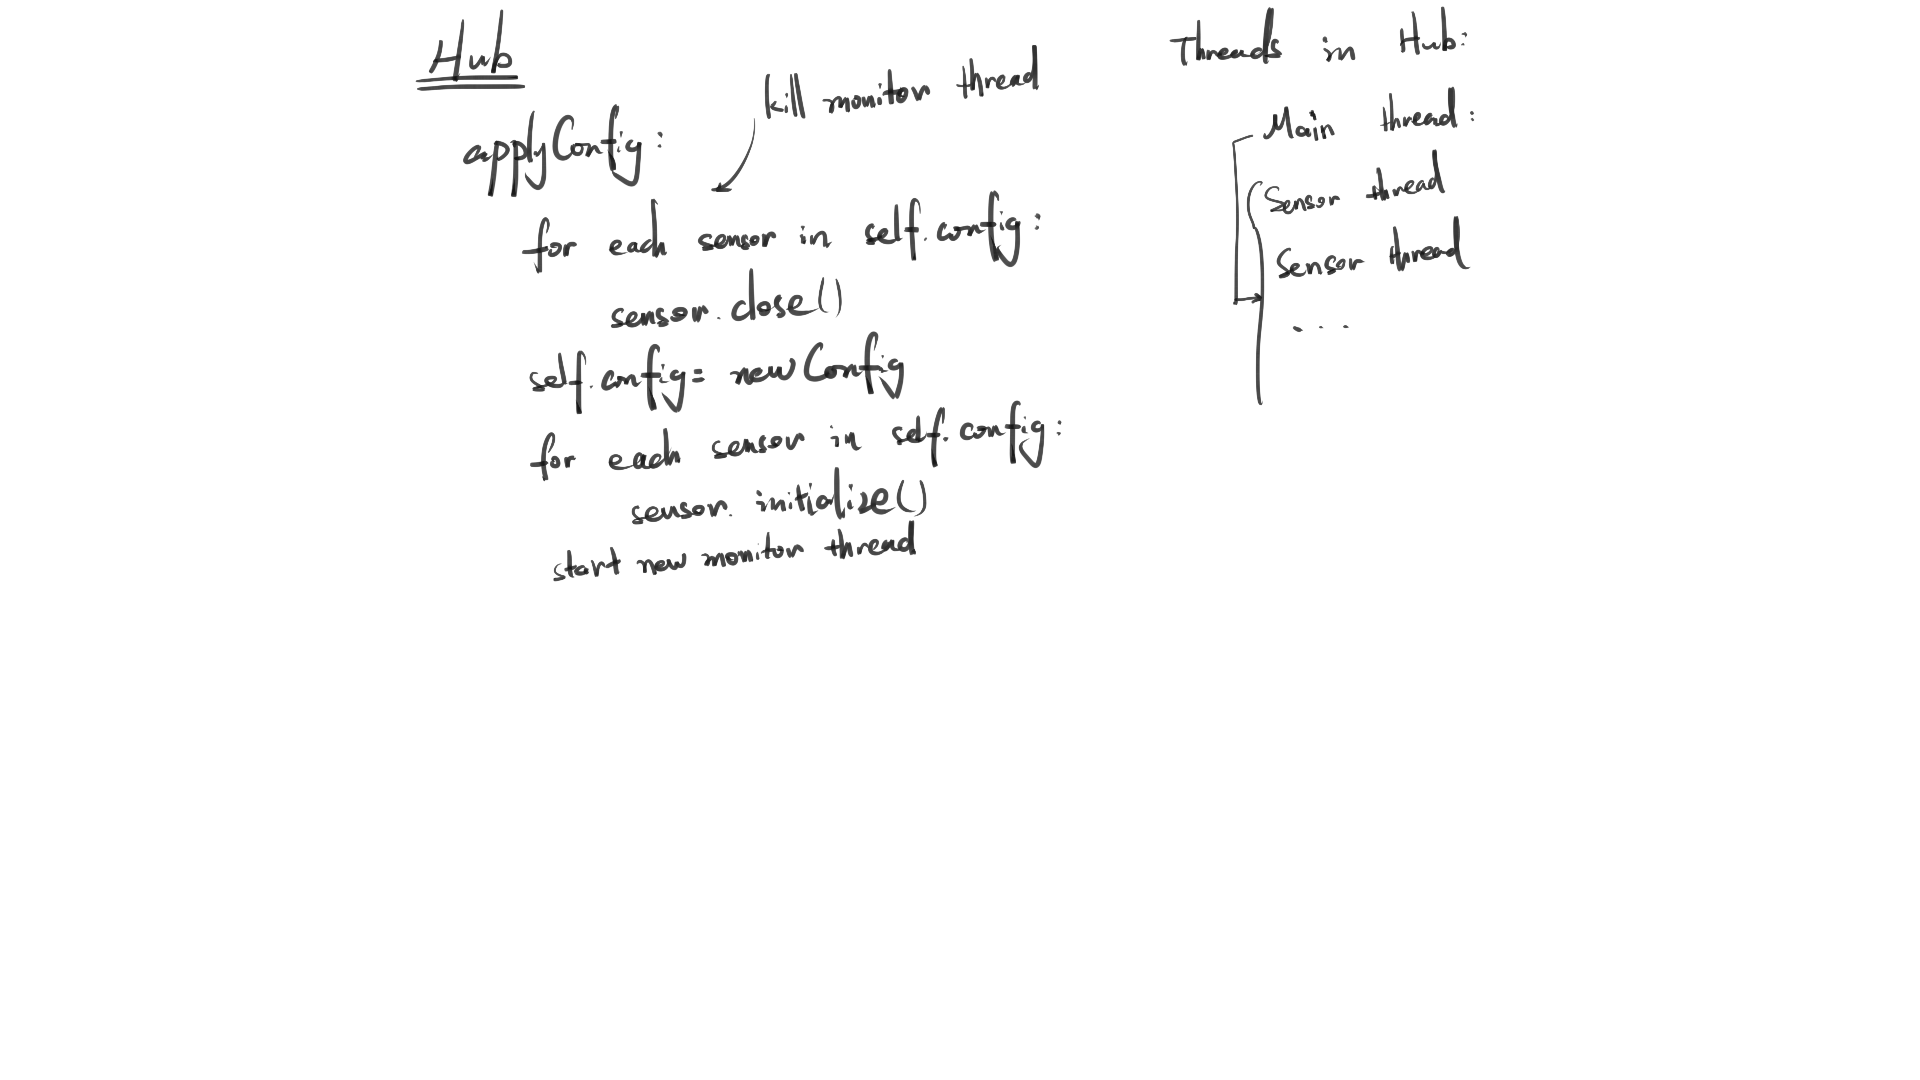 Hub
kill monitor thread
applyConfig:
for each sensor in self.config:
sensor.close()
self.config = newConfig
for each sensor in self.config:
sensor.initialize()
start new monitor thread
Threads in Hub:
Main thread:
Sensor thread
Sensor thread
...